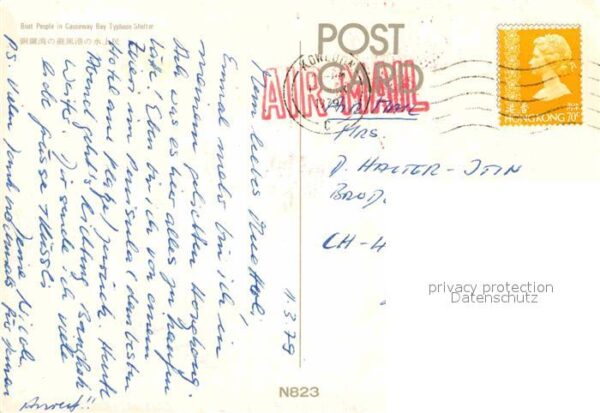 Boat People in Causeway Bay Typhoon Shelter
銅鑼湾の避風港の水上民
POST
CARD
AIR MAIL
KOWLOON
HONG KONG 70¢
Mrs.
D. HALTER-ITIN
BROD.
CH-4
privacy protection
Datenschutz
11.3.79
Mein liebes Muetti,
Einmal mehr bin ich in
meinem geliebten Hongkong.
Ach was es hier alles zu kaufen
gibt. Eben bin ich von einem
Peninsula (dem besten
Hotel am Platze) zurück. Heute
Abend geht's Richtung Bangkok
weiter. Dir sende ich viele
liebe Grüsse + Müssli
Deine Nicole
PS Vielen Dank nochmals für Deinen
N823